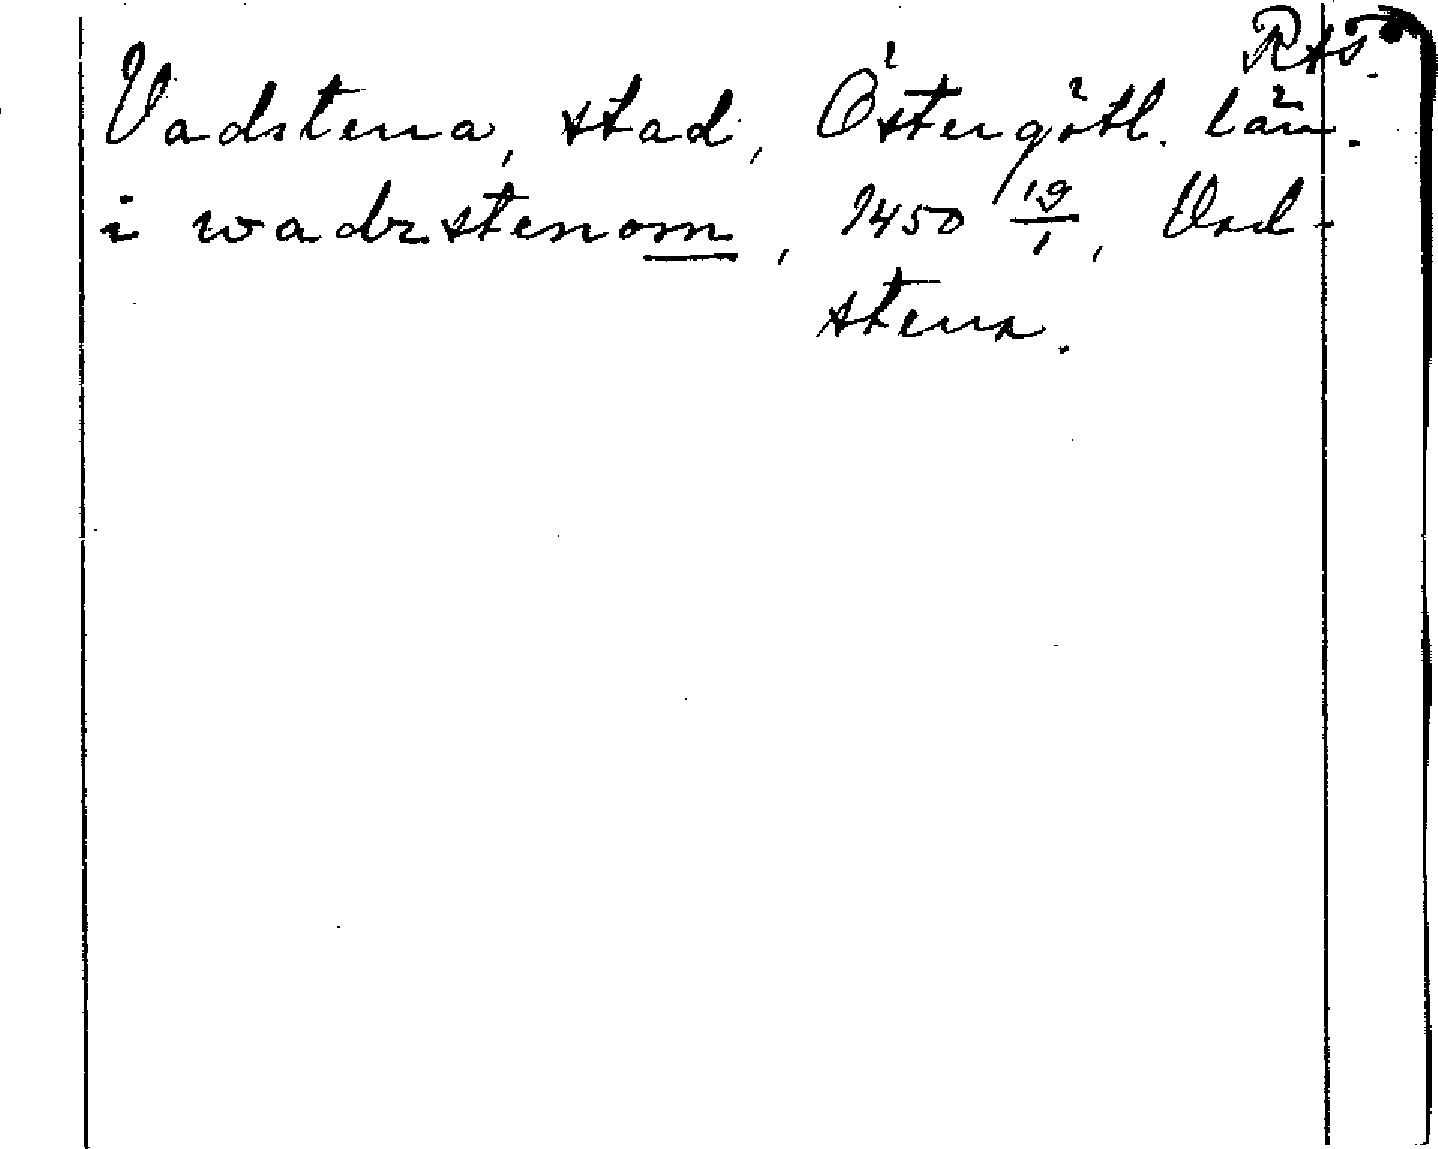 Rts.
Vadstena, stad, Östergötl. län.
i wadzstenom, 1450 19/1, Vad-
stena.